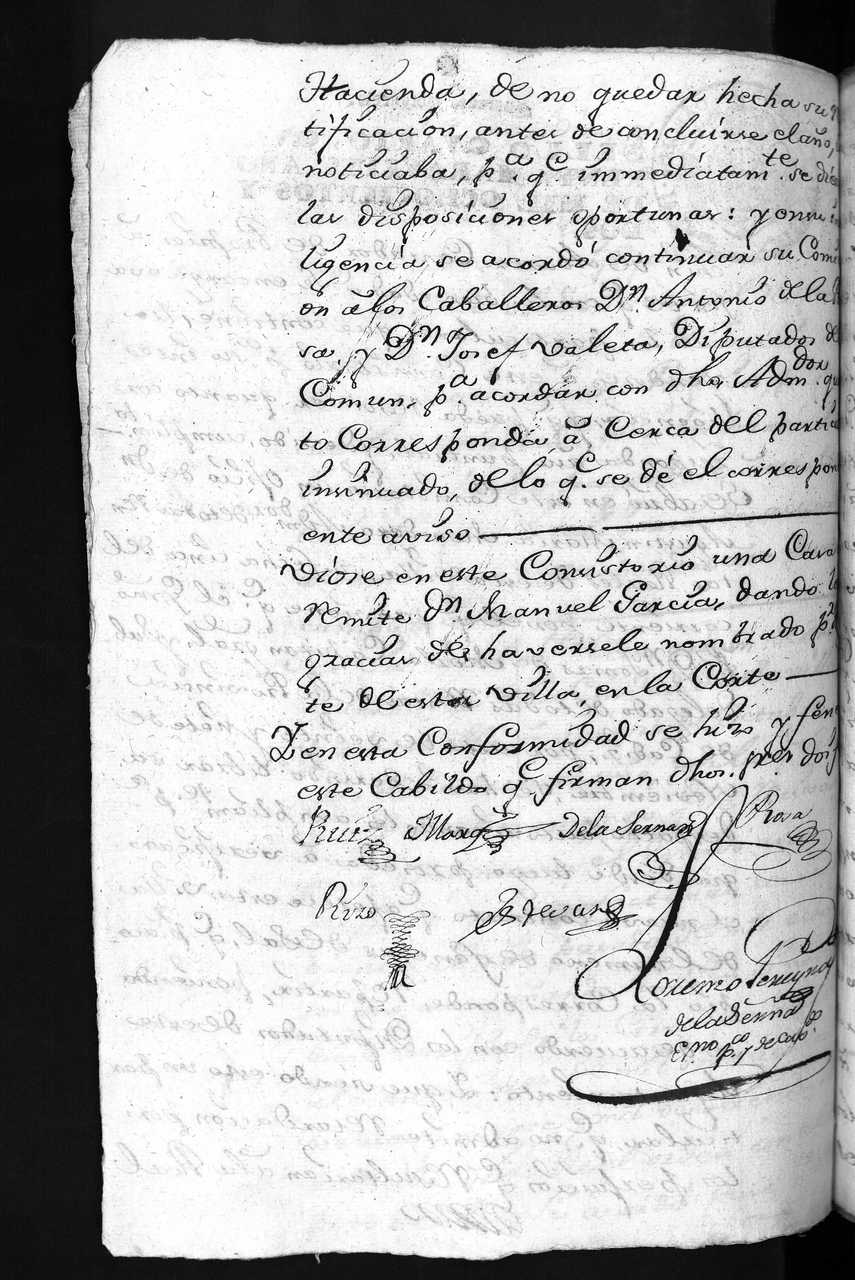 Hacienda, de no quedar hecha su
tificacion, antes de concluirse el año,
noticiaba, pa. qe. immediatamte. se die
las disposiciones oportunas: y en su in
ligencia se acordó continuar su Comi
on a los Caballeros Dn. Antonio de la
sa, y Dn. Josef Valeta, Diputados del
Comun, pa. acordar con dho. Admdor. qu
to Corresponda, a Cerca del partic
insinuado, de lo qe. se dé el correspon
ente aviso
Viose en este Consistorio una Carta
remite Dn. Manuel Garcia, dando las
gracias de haversele nombrado
te de esta villa, en la Corte
Y en esta Conformidad se hizo y fene
este Cabildo qe. firman dhos. sres. doi f
Ruiz Marqz. De la Serna Rosa
Rizo
Lorenzo Pereyra
de la Serna
Essno. pco. y de cavdo.